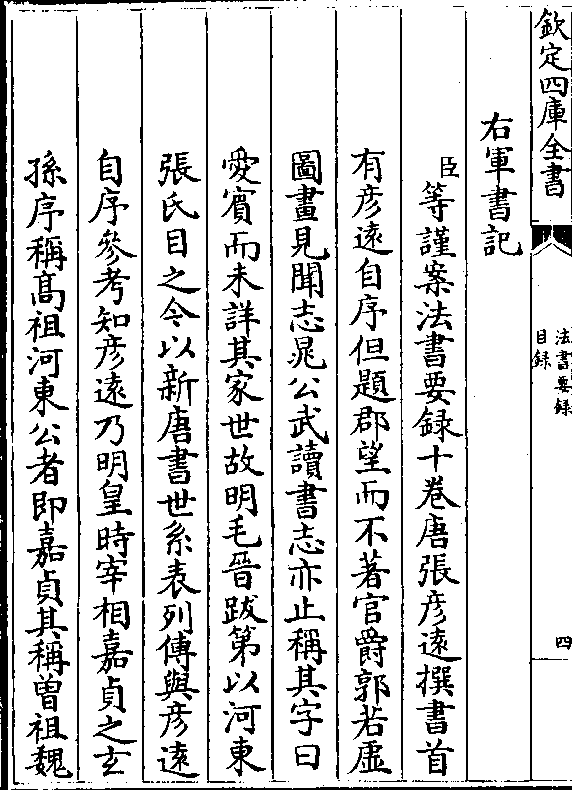 欽定四庫全書
法書要録
目録
四
右軍書記
臣等謹案法書要録十卷唐張彦逺撰書首
有彦逺自序但題郡望而不著官爵郭若虚
圖畫見聞志晁公武讀書志亦止稱其字曰
愛賓而未詳其家世故明毛晉跋第以河東
張氏目之今以新唐書世系表列傳與彦逺
自序參考知彦逺乃明皇時宰相嘉貞之玄
孫序稱髙祖河東公者即嘉貞其稱曽祖魏